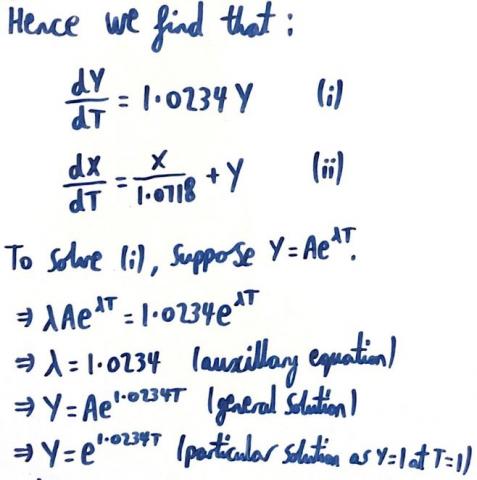 Hence we find that:
dY/dT = 1.0234 Y (i)
dX/dT = X/1.0718 + Y (ii)
To solve (i), suppose Y = Ae^λT.
⇒ λAe^λT = 1.0234e^λT
⇒ λ = 1.0234 (auxillary equation)
⇒ Y = Ae^1.0234T (general solution)
⇒ Y = e^1.0234T (particular solution as Y=1 at T=1)